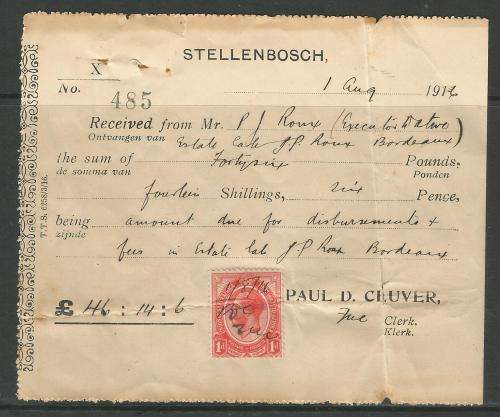 STELLENBOSCH,
X
1 Aug 1916
No. 485
Received from Mr. P J Roux (Executor Dative)
Ontvangen van
Estate Late J P Roux Bordeaux
the sum of Fortysix Pounds,
de somma van Ponden
fourteen Shillings, six Pence,
being amount due for disbursements &
zijnde
fees in Estate late J P Roux Bordeaux
£ 46 : 14 : 6
PAUL D. CLUVER,
Clerk.
Klerk.
1/8/16
PDC
1D
1D
T.T.S. 6258/3/16.